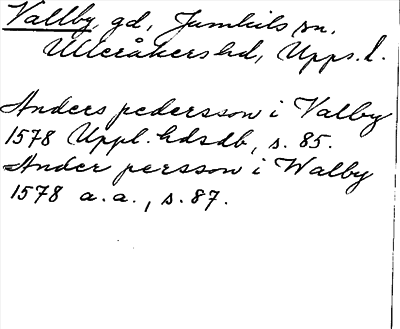 Vallby, gd, Jumkils sn.
Ulleråkers hd, Upps. l.
Anders pedersson i Valby
1578 Uppl. hdsdb, s. 85.
Ander persson i Walby
1578 a.a., s. 87.